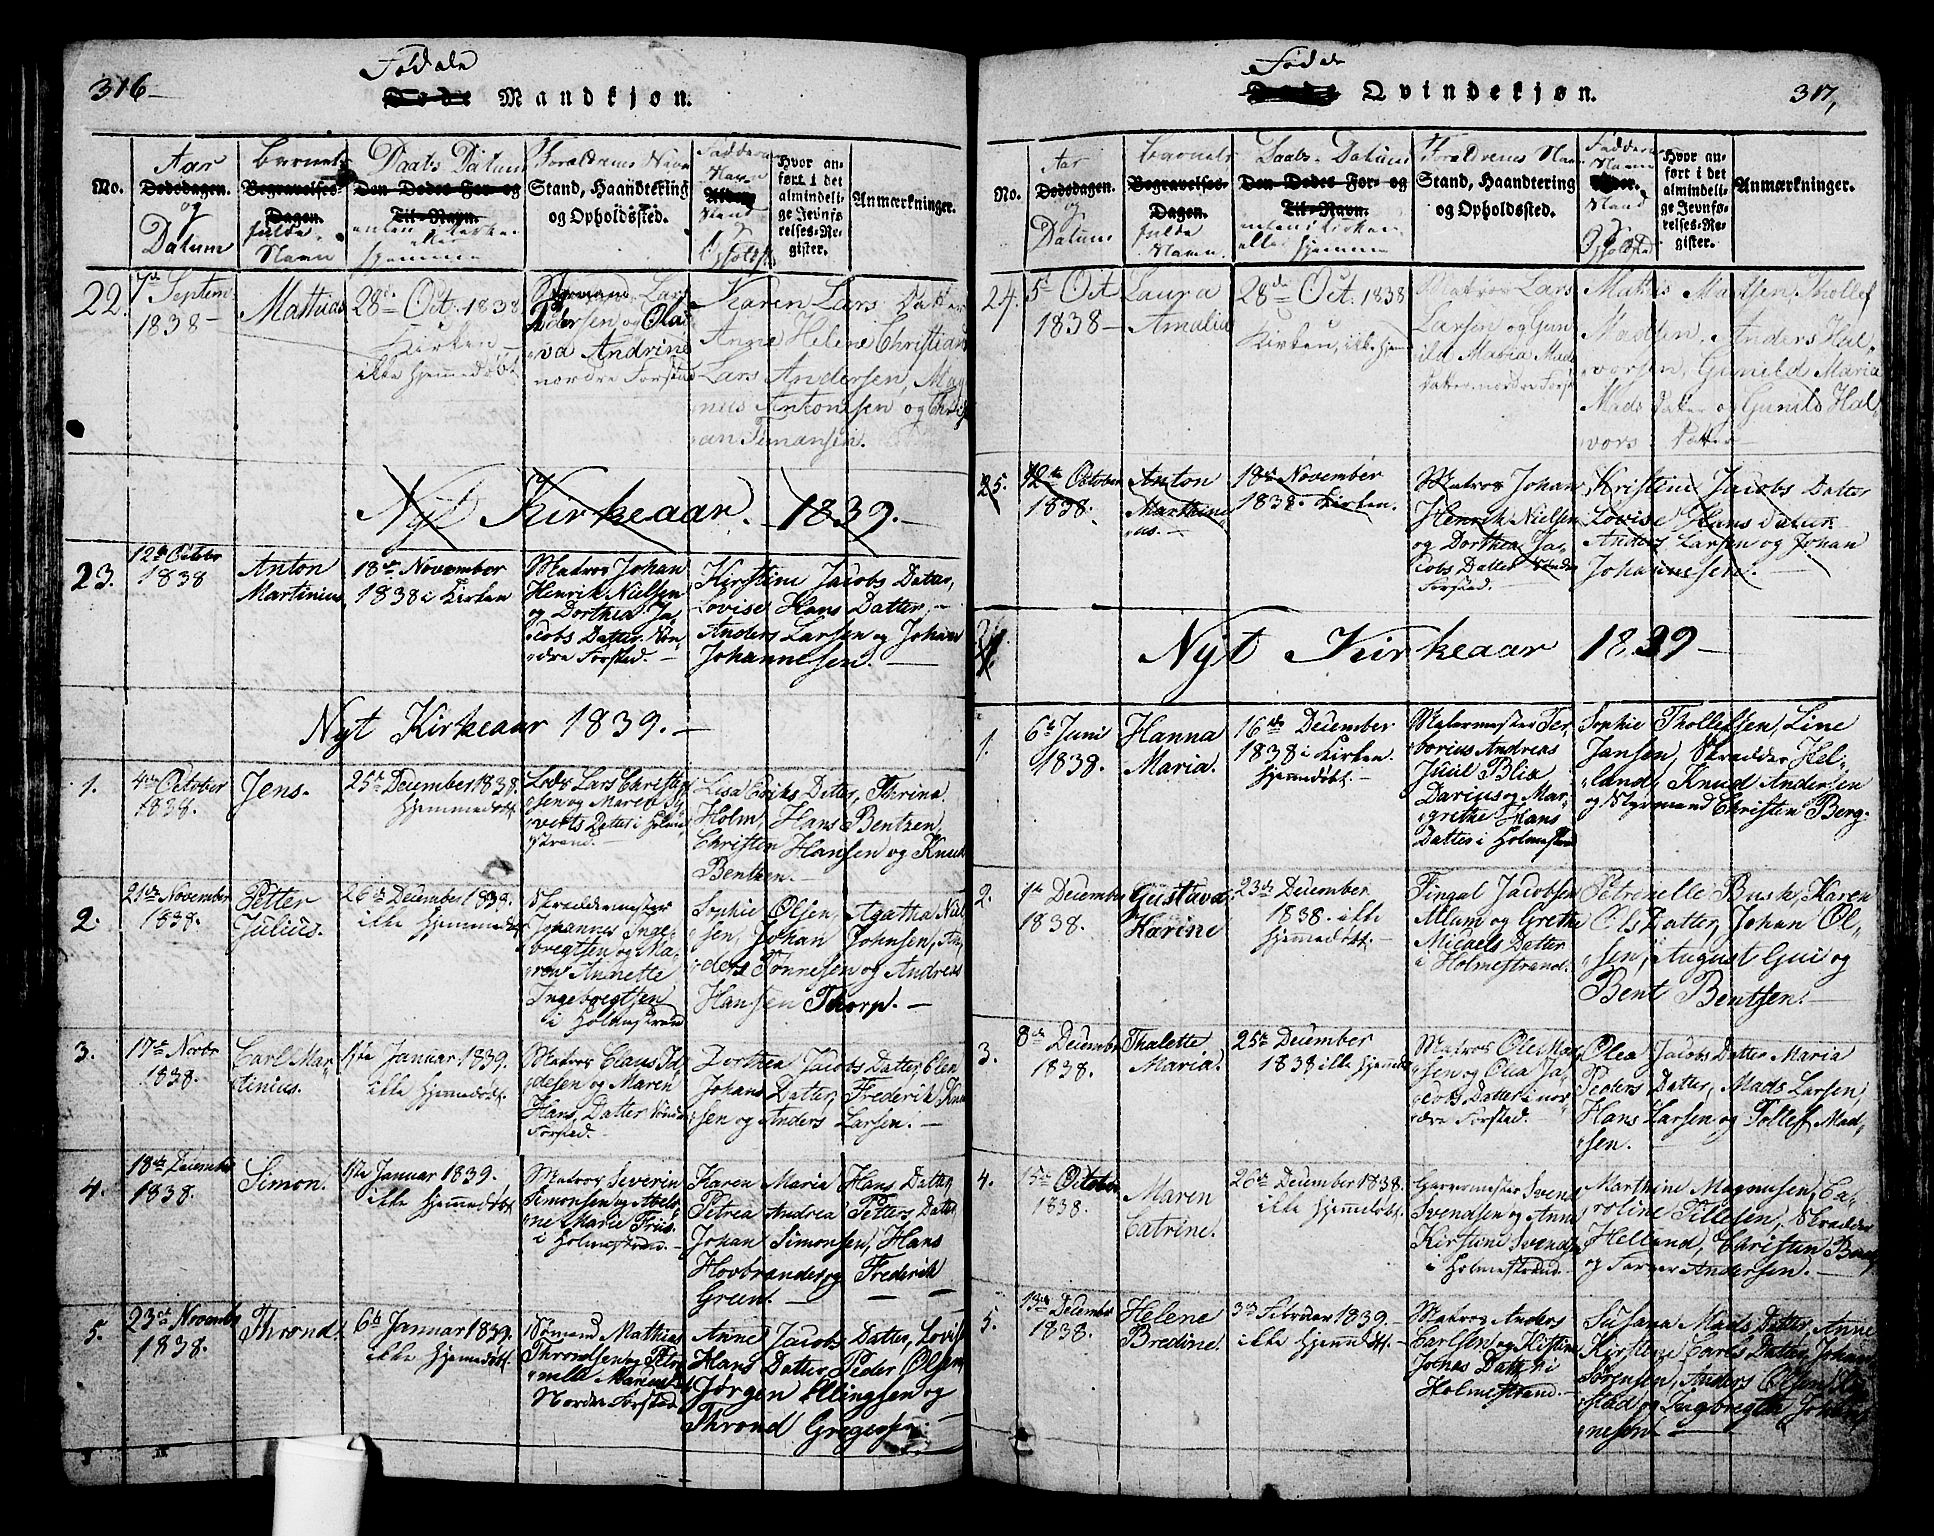 316
Fødale
Døde Mandkjøn.
No.
Aar
Dødsdagen.
og
Datum
Barnets
Begravelses-
Dagen.
fulde
Navn
Daabs Datum
Den Dødes For- og
Til-Navn.
enten i Kirken
eller
hjemme
Foreldrenes Navn
Stand, Haandtering
og Opholdssted.
Faddere
Navn
Stand
Opholdst
Hvor an-
ført i det
almindeli-
ge Jevnfø-
relses-Re-
gister.
Anmærkninger.
22.
7de Septem-
1838
Mathias
28de Oct. 1838
Kirken
ikke hjemmedøbt
Lars
Pedersen og Ola-
va Andrine
nordre Forstad
Karen Lars Datter
Anne Helene Christian
Lars Andersen, Mag-
nus Antonsen, og
Nyt Kirkeaar. 1839.
23.
12te Octobr
1838
Anton
Martinius
18de November
1838 i Kirken
Matros Johan
Henrik Nielsen
og Dorthea Ja-
cobs Datter. Søn-
dre Forstad.
Kirstine Jacobs Datter,
Lovise Hans Datter,
Anders Larsen og Johan
Johannesen.
Nyt Kirkeaar 1839.
1.
4de October
1838.
Jens.
25de December 1838.
hjemmedøbt.
Lods Lars Christof-
sen og Maren Sy-
verts Datter i Holme-
strand.
Lisa Eriks Datter, Thrina
Holm, Hans Bentzen,
Christen Hansen og Knud
Bentzen.
2.
21de November
1838.
Petter
Julius.
26de December 1839.
ikke hjemmedøbt
Skræddermester
Johannes Inge-
bregtsen og Ma-
ren Annette
Ingebregtsen
i Holmestrand
Sophie Olsen, Agatha Niel-
sen, Johan Johnsen, An-
ders Tønnesen og Andreas
Hansen Thorp.
3.
17de Novbr
1838.
Carl Mar-
tinius.
1ste Januar 1839.
ikke hjemmedøbt.
Matros Claus
desen og Maren
Hans Datter Søndre
Forstad.
Dorthea Jacobs Datter, Elen
Johans Datter, Frederik Knu-
sen og Anders Larsen.
4.
18de December
1838.
Simon.
1ste Januar 1839.
ikke hjemmedøbt
Matros Severin
Simonsen og Abel-
ne Marie Friis
i Holmestrand.
Karen Maria Hans Datter
Petrea Andrea Petters Datter
Johan Simonsen, Hans
Hovbrander og Frederik
Grün.
5.
23de Novembr
1838.
Thrond.
6te Januar 1839.
ikke hjemmedøbt.
Sømand Mathias
Throndsen og Petro-
nelle
Nordre Forstad
Anne Jacobs Datter, Lovise
Hans Datter Peder Olsen
Jørgen Ellingsen og
Thrond
317,
Fødde
Døde Qvindekjøn.
No.
Aar
Dødsdagen.
og
Datum
Barnets
Begravelses-
Dagen.
fulde
Navn.
Daabs-Datum
Den Dødes For- og
Til-Navn.
enten i Kirken
eller hjemme
Foreldrenes Navn
Stand, Haandtering
og Opholdssted.
Faddernes
Navn
Alder.
Stand
og
Opholdsted
Hvor an-
ført i det
almindeli-
ge Jevnfø-
relses-Re-
gister.
Anmærkninger.
24.
5te Oct
1838
Laura
Amalia
28de Oct. 1838
Kirken, ikke hjem
Matros Lars
Larsen og Gun-
ild Maria Mads
Datter, nordre Forst
Mathis Madsen, Thollef
Madsen, Anders Hal-
vorsen, Gunild Maria
Mads Datter og Gunild Hal-
vors Datter
25.
12te October
1838.
Anton
Marthini-
us.
18de November
1838. Kirken.
Matros Johan
Henrik Nielsen
og Dorthea Ja-
cobs Datter Søndre
Forstad.
Kristine Jacobs Datter
Lovise Hans datter
Anders Larsen og Johan
Johannesen.
Nyt Kirkeaar 1839
1.
6te Juni
1838.
Hanna
Maria.
16de December
1838 i Kirken.
hjemmedøbt.
Malermester Tor-
borius Andreas
Juul Blix
Darius og Mar-
grethe Hans
Datter i Holmestrand
Sophie Thollefsen, Line
Jansen, Skrædder Hel-
land, Knud Andersen
og Styrmand Christen Berg.
2.
1ste December
1838.
Gustava
Karine
23de December
1838. ikke
hjemmedøbt.
Fingal Jacobsen
Alum og Grethe
Micaels Datter
i Holmestrand.
Petronelle Busk, Karen
Ols Datter, Johan Ol-
sen, August Gui og
Bent Bentsen.
3.
8de December
1838.
Thalette
Maria.
25de December
1838 ikke hjemmed
Matros Ole Mad-
sen og Olea Ja-
cobs Datter i nor-
dre Forstad.
Olea Jacobs Datter Maria
Peders Datter, Mads Larsen,
Hans Larsen og Tollef Mad-
sen.
4.
15de October
1838.
Maren
Catrine.
26de December 1838.
ikke hjemmedøbt.
Garvermester Svend
Svendsen og Anne
Kirstine Svends
i Holmestrand.
Marthine Magnusen, Ca-
roline Tillesen, Skrædder
Helland, Christen
og Farver Andersen.
5.
13de December
1838.
Helene
Bredine.
3de Februar 1839.
ikke hjemmedøbt.
Matros Anders
Carlsen og Kirstine
Johns Datter i
Holmestrand.
Susana Mads Datter, Anne
Kirstine Carls Datter, Johan
Sørensen, Anders Olsen
stad og Ingbregth Johan-
nesen.